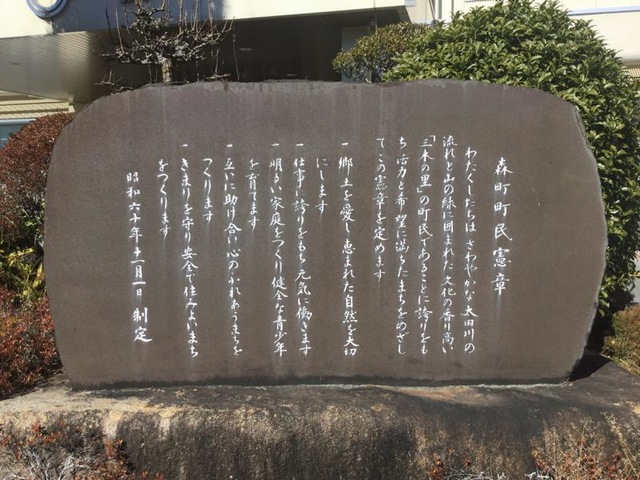 森町町民憲章
わたくしたちはさわやかな太田川の
流れと山の緑に囲まれた文化の香り高い
「三木の里」の町民であることに誇りをも
ち活力と希望に満ちたまちをめざし
てこの憲章を定めます
一 郷土を愛し恵まれた自然を大切
にします
一 仕事に誇りをもち元気に働きます
一 明るい家庭をつくり健全な青少年
を育てます
一 互いに助け合い心のふれあうまちを
つくります
一 きまりを守り安全で住みよいまち
をつくります
昭和六十年十一月一日 制定